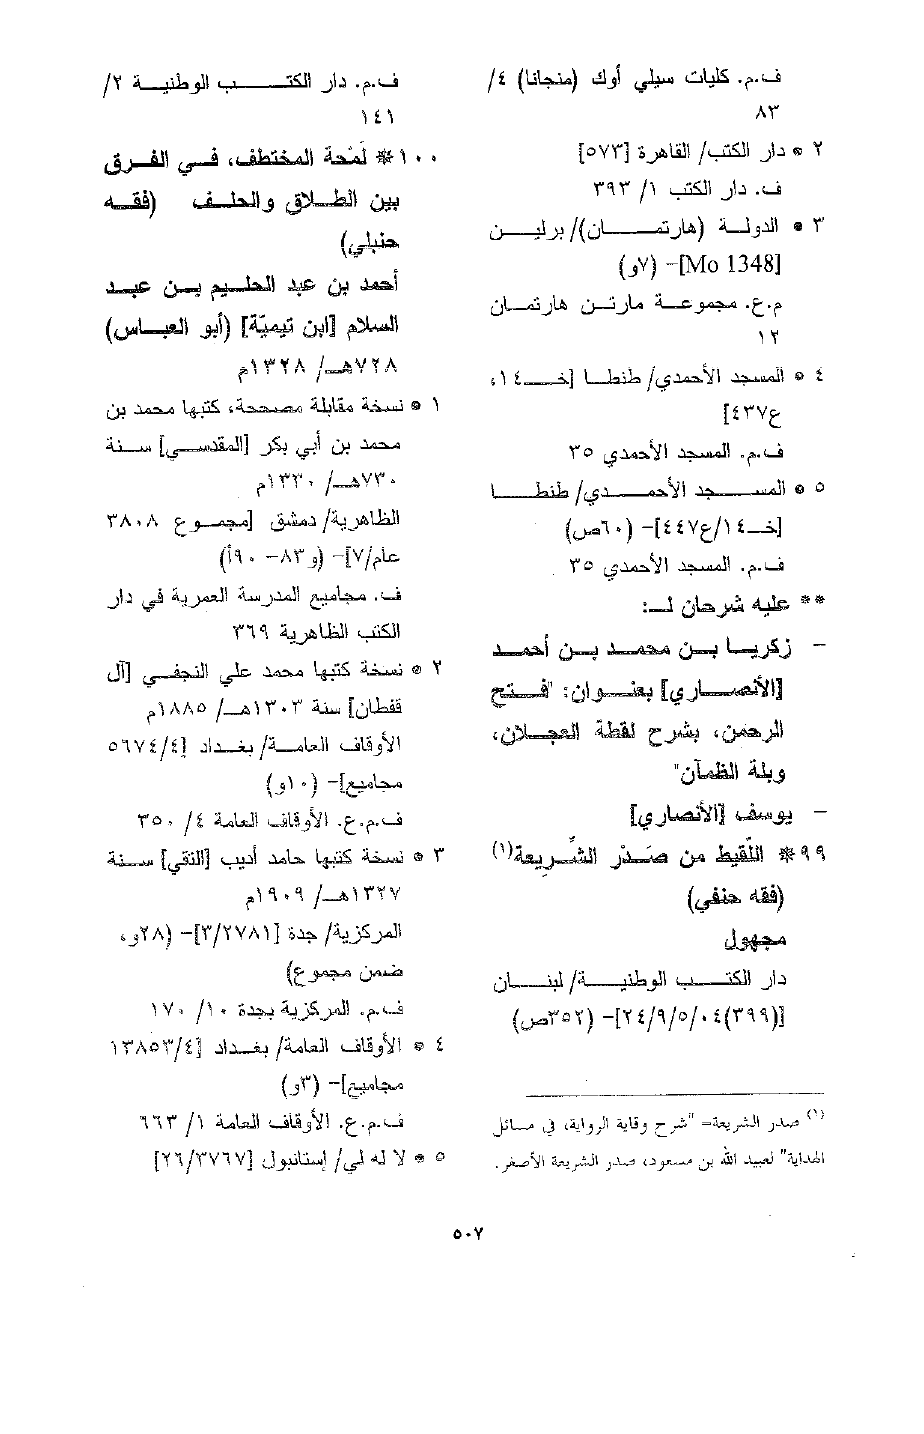 ف.م. كليات سيلي أوك (منجانا) ٤/
٨٣
٢ * دار الكتب/ القاهرة [٥٧٣]
ف. دار الكتب ١/ ٣٩٣
٣ * الدولة (هارتمان)/ برلين
[Mo 1348]- (٧و)
م.ع. مجموعة مارتن هارتمان
١٢
٤ * المسجد الأحمدي/ طنطا [خـ١٤،
ع٤٣٧]
ف.م. المسجد الأحمدي ٣٥
٥ * المسجد الأحمدي/ طنطا
[خـ١٤/ع٤٤٧]- (٦٠ص)
ف.م. المسجد الأحمدي ٣٥
** عليه شرحان لـ:
- زكريا بن محمد بن أحمد
[الأنصاري] بعنوان: "فتح
الرحمن، بشرح لقطة العجلان،
وبلة الظمآن"
- يوسف [الأنصاري]
٩٩* اللَّقيط من صَدْر الشَّرِيعة(١)
(فقه حنفي)
مجهول
دار الكتب الوطنية/ لبنان
[(٣٩٩)٢٤/٩/٥/٠٤]- (٣٥٢ص)
(١) صدر الشريعة= "شرح وقاية الرواية، في مسائل
الهداية" لعبيد الله بن مسعود، صدر الشريعة الأصغر.
ف.م. دار الكتب الوطنية ٢/
١٤١
١٠٠* لَمْحة المختطف، في الفرق
بين الطلاق والحلف (فقه
حنبلي)
أحمد بن عبد الحليم بن عبد
السلام [ابن تيميّة] (أبو العباس)
٧٢٨هـ/ ١٣٢٨م
١ * نسخة مقابلة مصححة، كتبها محمد بن
محمد بن أبي بكر [المقدسي] سنة
٧٣٠هـ/ ١٣٣٠م
الظاهرية/ دمشق [مجموع ٣٨٠٨
عام/٧]- (و٨٣- ٩٠أ)
ف. مجاميع المدرسة العمرية في دار
الكتب الظاهرية ٣٦٩
٢ * نسخة كتبها محمد علي النجفي [آل
قفطان] سنة ١٣٠٣هـ/ ١٨٨٥م
الأوقاف العامة/ بغداد [٥٦٧٤/٤
مجاميع]- (١٠و)
ف.م.ع. الأوقاف العامة ٤/ ٣٥٠
٣ * نسخة كتبها حامد أديب [التقي] سنة
١٣٢٧هـ/ ١٩٠٩م
المركزية/ جدة [٣/٢٧٨١]- (٢٨و،
ضمن مجموع)
ف.م. المركزية بجدة ١٠/ ١٧٠
٤ * الأوقاف العامة/ بغداد [١٣٨٥٣/٤
مجاميع]- (٣و)
ف.م.ع. الأوقاف العامة ١/ ٦٦٣
٥ * لا له لي/ إستانبول [٢٦/٣٧٦٧]
٥٠٧